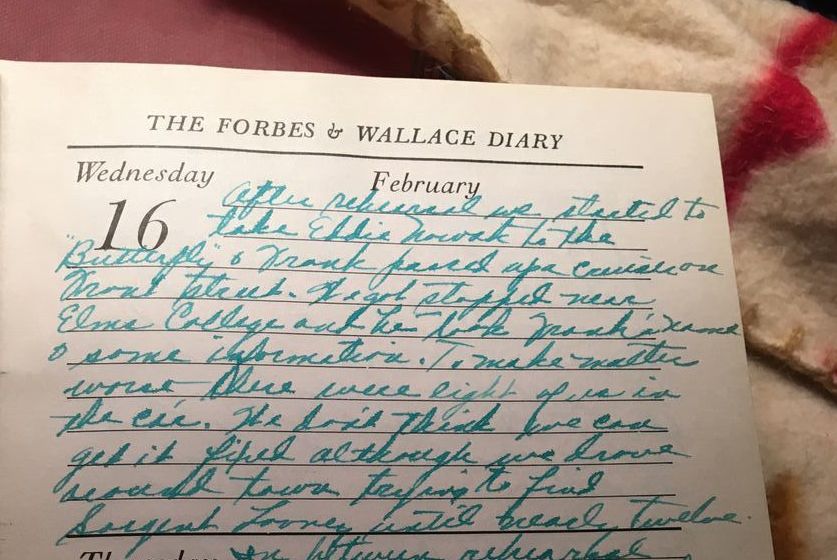 THE FORBES & WALLACE DIARY
Wednesday February
16 After rehearsal we started to
take Eddie Nowak to the
"Butterfly" & Frank passed up a cruise on
Front Street. He got stopped near
Elms College and he took Frank's name
& some information. To make matter
worse there were eight of us in
the car. We don't think we can
get it fixed although we drove
around town trying to find
Sargent until nearly twelve.
Thursday In between rehearsal